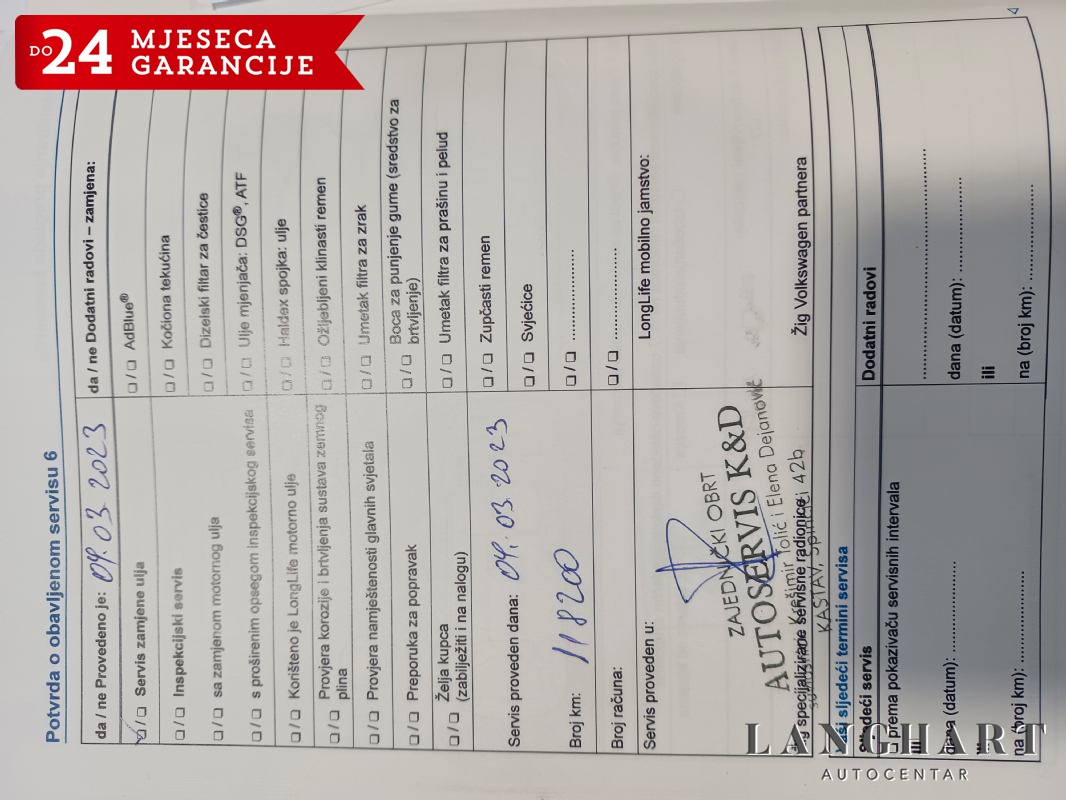 DO 24 MJESECA
GARANCIJE
Potvrda o obavljenom servisu 6
da / ne Provedeno je: 04.03.2023
da / ne Dodatni radovi – zamjena:
☐ / ☐ Servis zamjene ulja
☐ / ☐ AdBlue®
☐ / ☐ Inspekcijski servis
☐ / ☐ Kočiona tekućina
☐ / ☐ sa zamjenom motornog ulja
☐ / ☐ Dizelski filtar za čestice
☐ / ☐ s proširenim opsegom inspekcijskog servisa
☐ / ☐ Ulje mjenjača: DSG®, ATF
☐ / ☐ Korišteno je LongLife motorno ulje
☐ / ☐ Haldex spojka: ulje
☐ / ☐ Provjera korozije i brtvljenja sustava zemnog
plina
☐ / ☐ Ožljebljeni klinasti remen
☐ / ☐ Provjera namještenosti glavnih svjetala
☐ / ☐ Umetak filtra za zrak
☐ / ☐ Preporuka za popravak
☐ / ☐ Boca za punjenje gume (sredstvo za
brtvljenje)
☐ / ☐ Želja kupca
(zabilježiti i na nalogu)
☐ / ☐ Umetak filtra za prašinu i pelud
Servis proveden dana: 04.03.2023
☐ / ☐ Zupčasti remen
☐ / ☐ Svjećice
Broj km: 118200
☐ / ☐ ....................
Broj računa:
☐ / ☐ ....................
Servis proveden u:
LongLife mobilno jamstvo:
ZAJEDNIČKI OBRT
AUTOSERVIS K&D
Krešimir Tolić i Elena Dejanović
KASTAV, Spinčići 42b
specijalizirane servisne radionice
Žig Volkswagen partnera
Vaši sljedeći termini servisa
Sljedeći servis
Dodatni radovi
☐ prema pokazivaču servisnih intervala
....................
ili
dana (datum): ....................
dana (datum): ....................
ili
ili
na (broj km): ....................
na (broj km): ....................
LANGHART
AUTOCENTAR